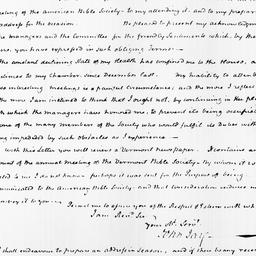 Meeting of the American Bible Society – to my attending it, and to my preparing
address for the occasion. Be pleased to present my acknowledgments
the managers and the Committee for the friendly Sentiments which, by their
me, you have expressed in such obliging Terms –
The constant declining State of my Health has confined me to the House, and
times to my Chamber, since December last. My inability to attend
interesting meetings is a painful circumstance; and the more I reflect
the more I am inclined to think that I ought not, by continuing in the place
which the managers have honored me to prevent its being occupied
one of the many members of the Society who could fulfil its Duties without
being impeded by such obstacles as I experience –
With this Letter you will receive a Vermont newspaper. It contains an
account of the annual meeting of the Vermont Bible Society. By whom it was
to me I do not know. perhaps it was sent for the Purpose of being
communicated to the American Bible Society, and that Consideration induces me
it to you. Permit me to assure you of the Respect & Esteem with which
I am Revd. Sir
Your Obt. Servt.
John Jay
I shall endeavour to prepare an address in Season, and if there be any reason